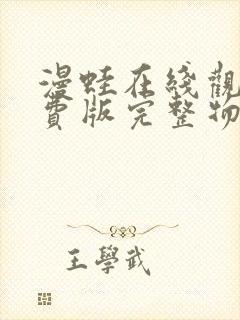 漫蛙在綫觀
費版完整物
王學武